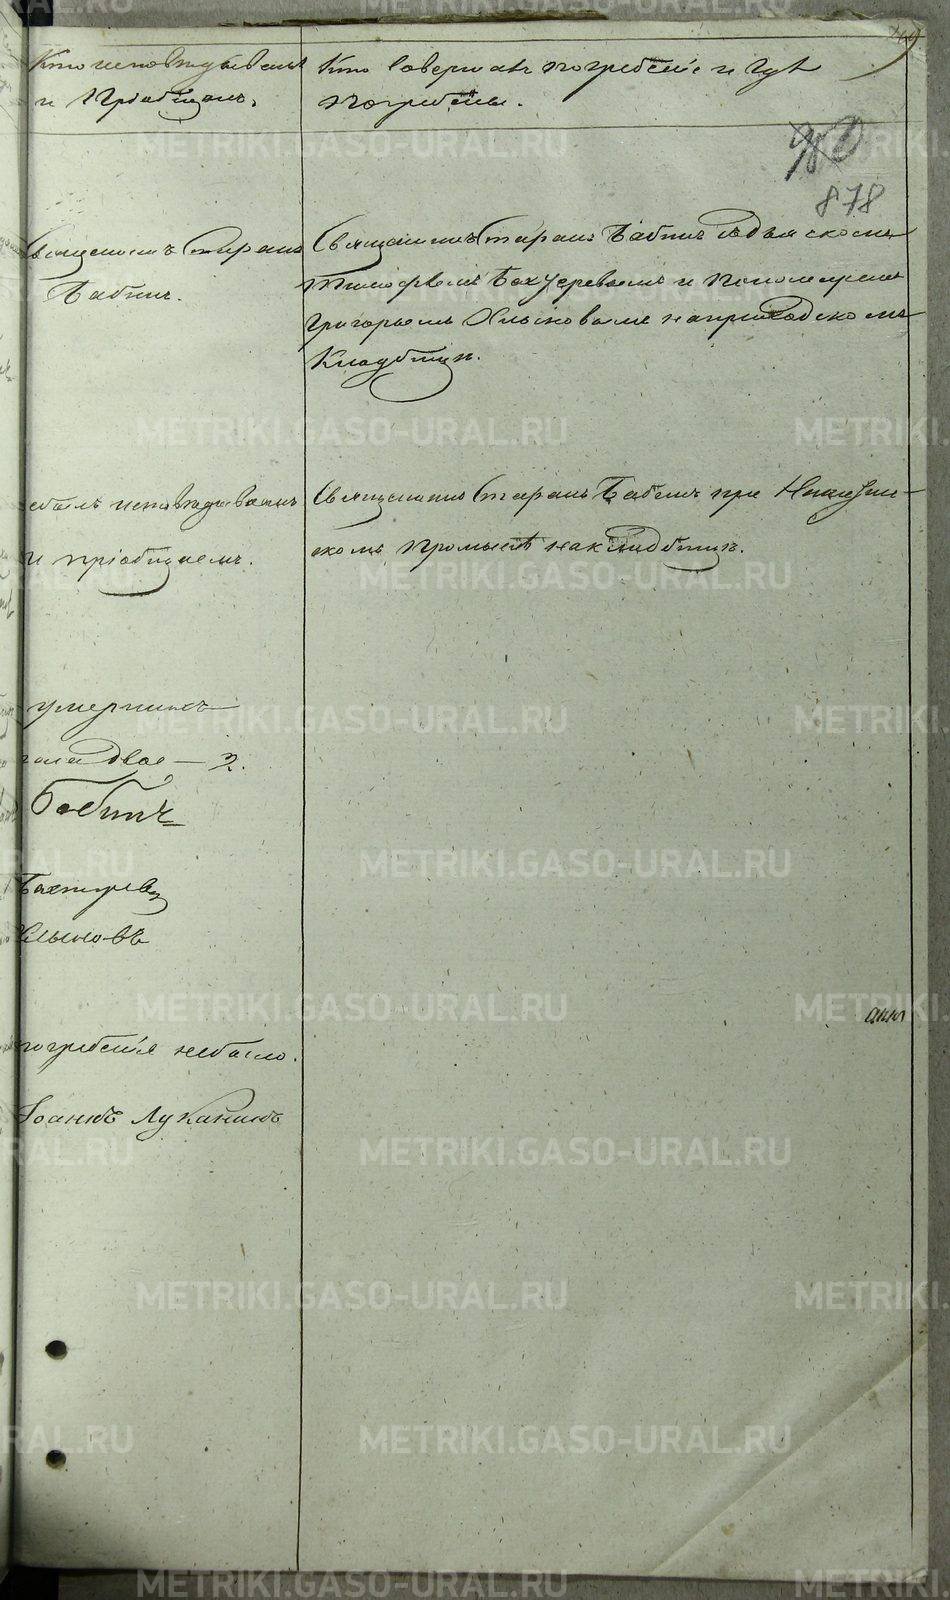 Кто исповѣдывалъ
и Пріобщалъ.
Кто совершалъ погребеніе и гдѣ
погребены.
878
Священникъ Стефанъ
Бабинъ.
Священникъ Стефанъ Бабинъ съ дьячкомъ
Тимофѣемъ Бахтеревымъ и Пономаремъ
Григорьемъ Хлыновымъ на приходскомъ
Кладбищѣ.
былъ исповѣдыванъ
и пріобщаемъ.
Священникъ Стефанъ Бабинъ при
скомъ промыслѣ на кладбищѣ.
умершихъ
пола двое — 2.
Бабинъ
Бахтеревъ
Хлыновъ
погребенія небыло.
Іоаннъ Луканинъ
METRIKI.GASO-URAL.RU